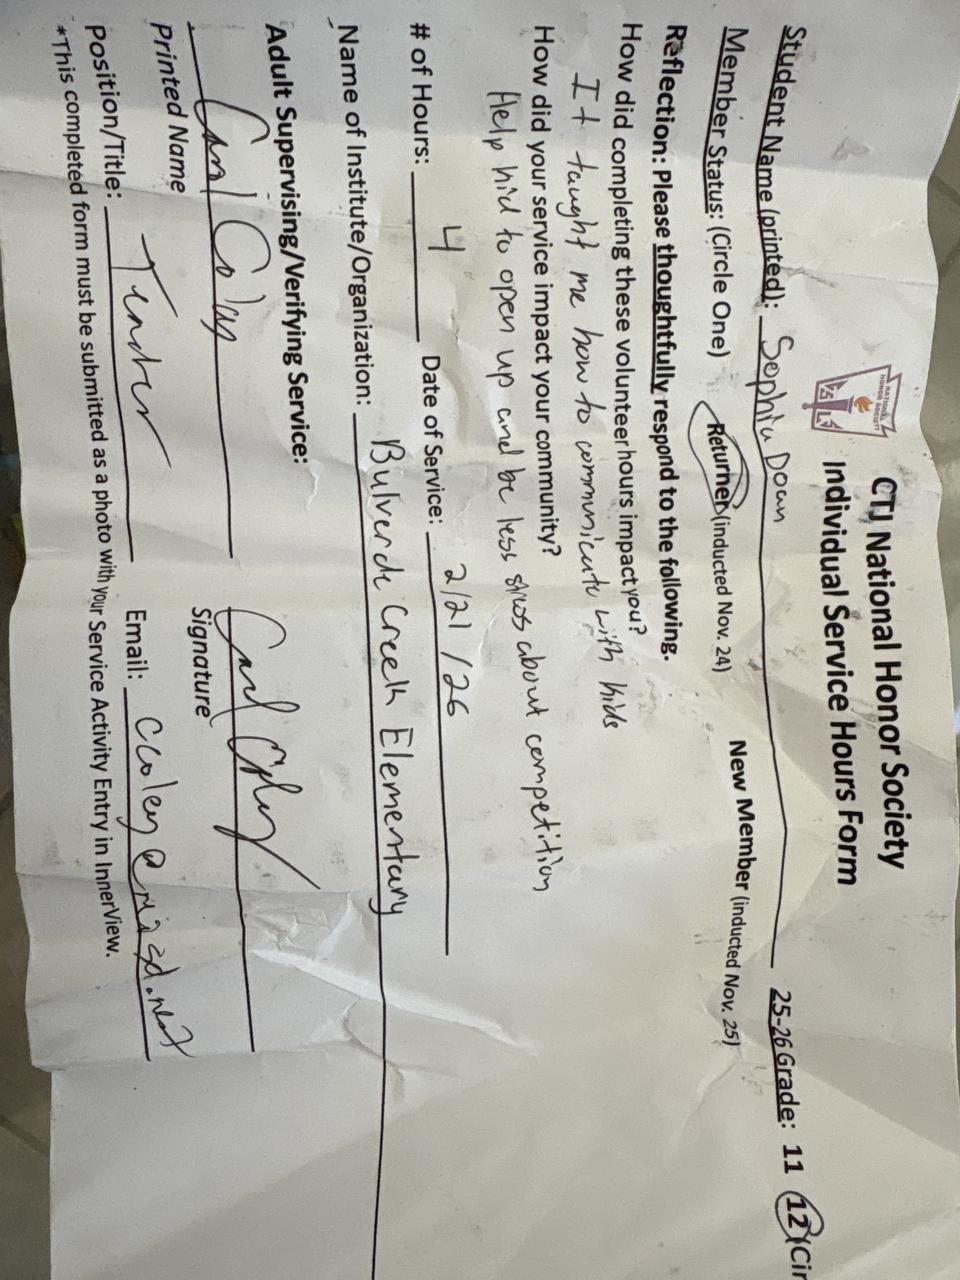 NATIONAL HONOR SOCIETY
CTJ National Honor Society
Individual Service Hours Form
Student Name (printed): Sophia Doan 25-26 Grade: 11 12 (Cir
Member Status: (Circle One) Returner (inducted Nov. 24) New Member (inducted Nov. 25)
Reflection: Please thoughtfully respond to the following.
How did completing these volunteer hours impact you?
It taught me how to communicate with kids
How did your service impact your community?
Help kid to open up and be less stress about competition
# of Hours: 4 Date of Service: 2/21/26
Name of Institute/Organization: Bulverde Creek Elementary
Adult Supervising/Verifying Service:
Printed Name Signature
Position/Title: Email:
*This completed form must be submitted as a photo with your Service Activity Entry in InnerView.